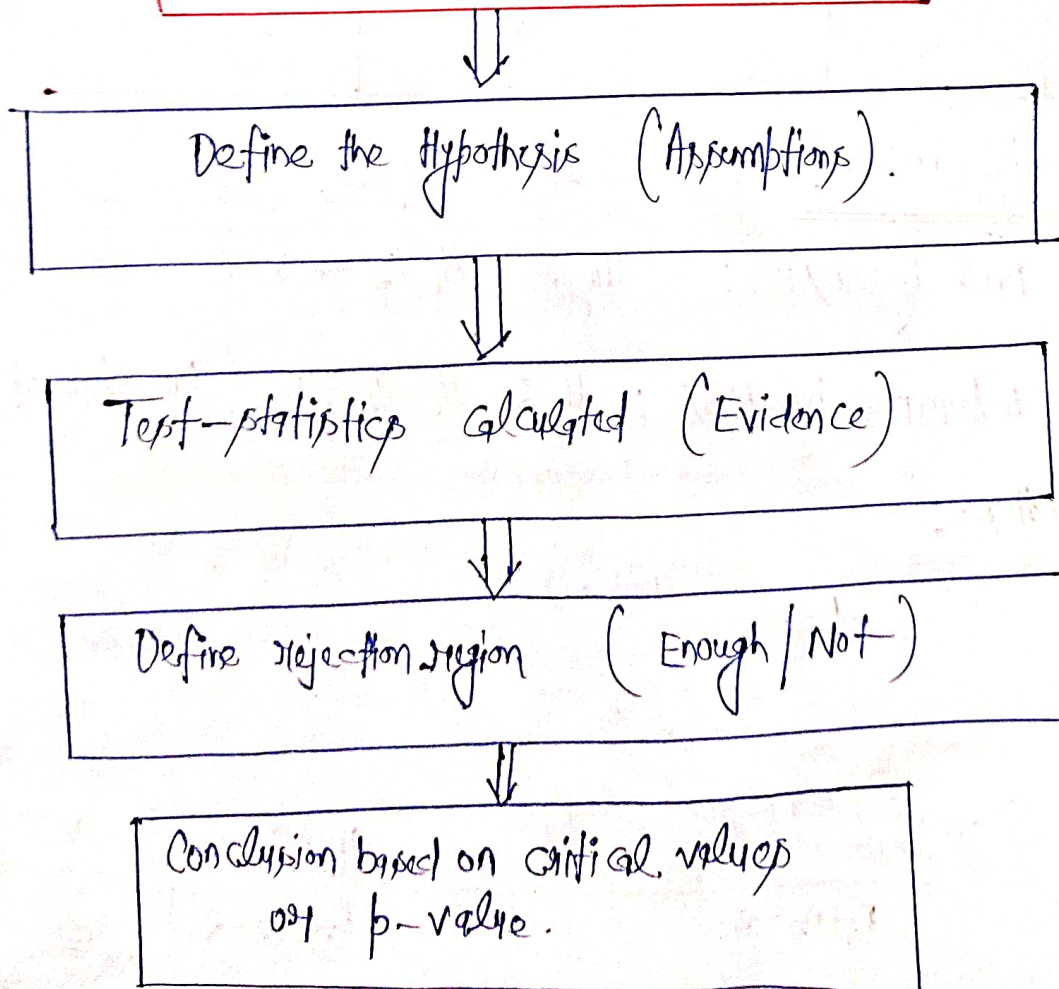 Define the Hypothesis (Assumptions).
Test-statistics calculated (Evidence)
Define rejection region (Enough / Not)
Conclusion based on critical values
or p-value.